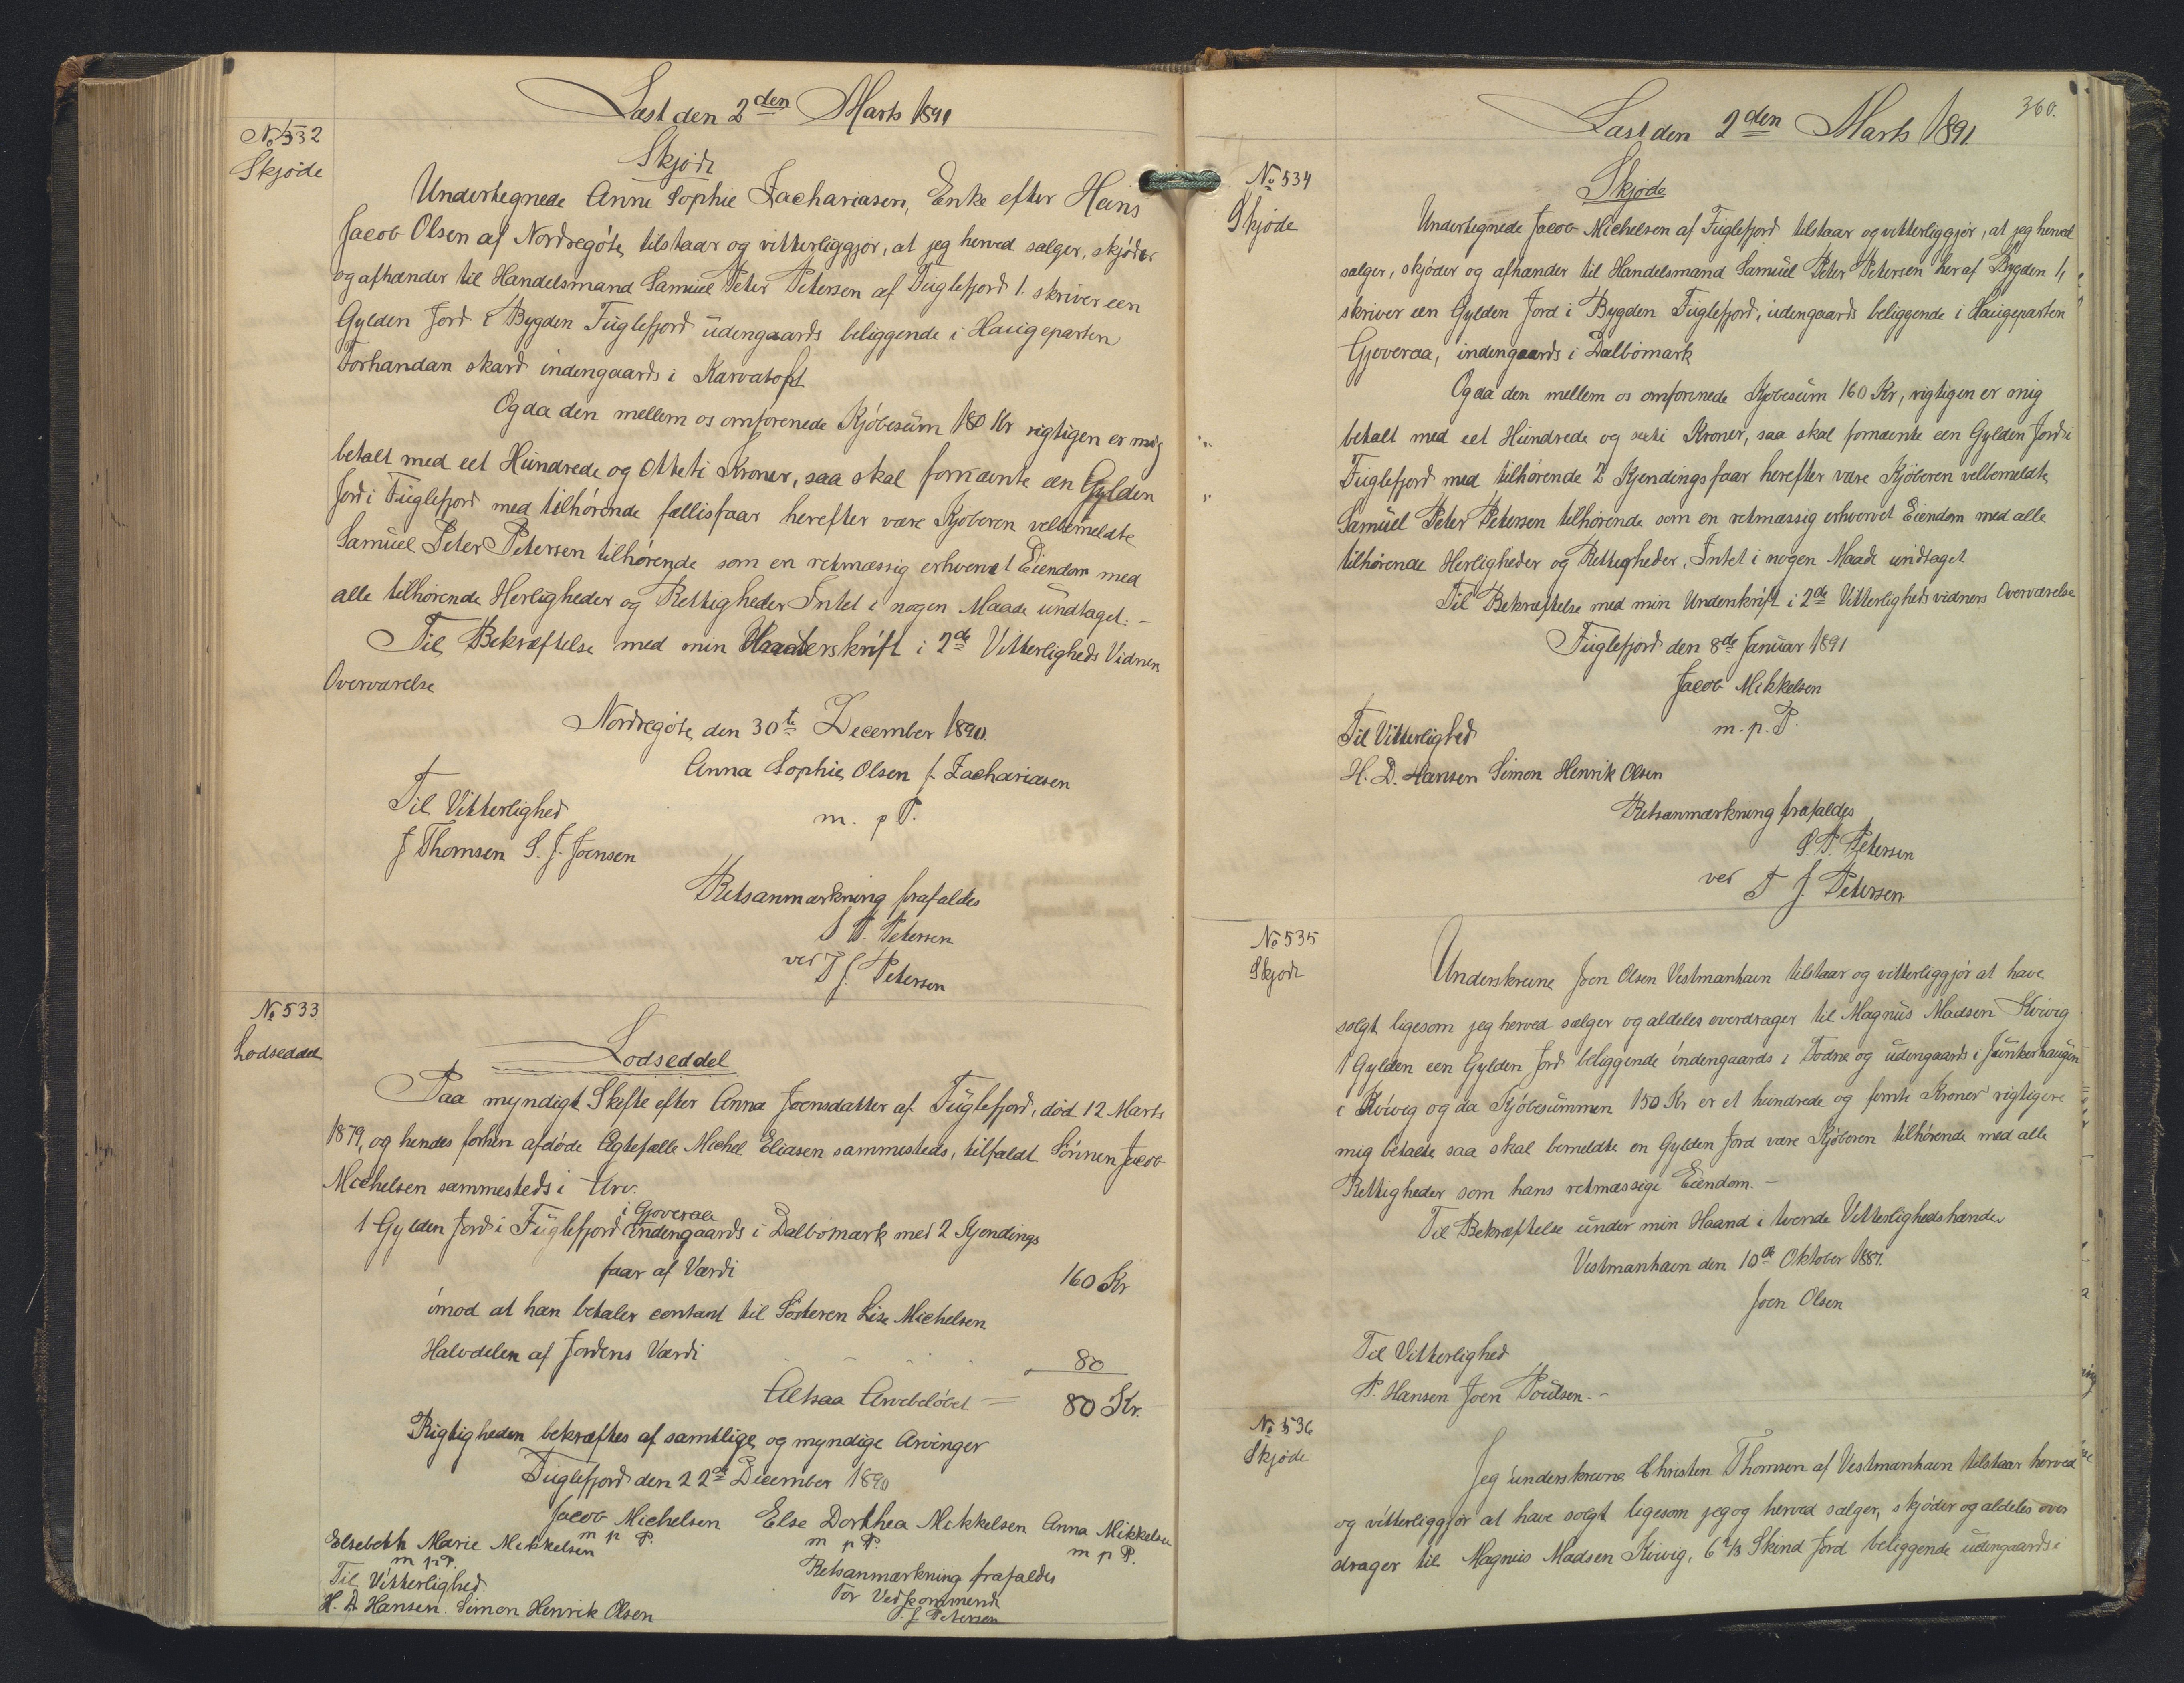 Læst den 2den Marts 1891
No 532
Skjøde
Skjøde
Undertegnede Anne Sophie Zachariasen, Enke efter Hans
Jacob Olsen af Nordregøte, tilstaar og vitterliggjør, at jeg herved sælger, skjøder
og afhænder til Handelsmand Samuel Peter Petersen af Fuglefjord 1. skriver een
Gylden Jord i Bygden Fuglefjord udengaards beliggende i Haugeparten
Forhandan skard indengaards i Karvatoft
Og da den mellem os omforenede Kjøbesum 180 Kr rigtigen er mig
betalt med eet Hundrede og Otteti Kroner, saa skal fornævnte een Gylden
Jord i Fuglefjord med tilhørende fællisfaar herefter være Kjøberen velbemeldte
Samuel Peter Petersen tilhørende som en retmæssig erhvervet Eiendom med
alle tilhørende Herligheder og Rettigheder Intet i nogen Maade undtaget. -
Til Bekræftelse med min Underskrift i 2de Vitterligheds Vidners
Overværelse
Nordregøte, den 30te December 1890.
Anna Sophie Olsen f. Zachariasen
m. p P.
Til Vitterlighed
J Thomsen S. J. Joensen
Retsanmærkning frafaldes
S P. Petersen
ved J J. Petersen
No 533.
Lodseddel
Lodseddel
Paa myndigt Skifte efter Anna Joensdatter af Fuglefjord, død 12 Marts
1879, og hendes forhen afdøde Ægtefælle Michel Eliasen sammesteds, tilfaldt Sønnen Jacob
Michelsen sammesteds i Arv.
i Gjoveraa
1 Gylden Jord i Fuglefjord indengaards i Dalbømark med 2 Kjendings
faar af Værdi 160 Kr
imod at han betaler contant til Søsteren Lise Michelsen
Halvdelen af Jordens Værdi 80
Altsaa Arvebeløbet = 80 Kr.
Rigtigheden bekræftes af samtlige og myndige Arvinger
Fuglefjord den 22de December 1890
Jacob Michelsen Else Dorthea Mikkelsen Anna Mikkelsen
m p P. m p P. m p P.
Elsebeth Marie Mikkelsen
m p P.
Til Vitterlighed Retsanmærkning frafaldes
H. D Hansen. Simon Henrik Olsen For Vedkommende
J. J Petersen
360.
Læst den 2den Marts 1891
No 534
Skjøde
Skjøde
Undertegnede Jacob Michelsen af Fuglefjord tilstaar og vitterliggjør, at jeg herved
sælger, skjøder og afhænder til Handelsmand Samuel Peter Petersen her af Bygden 1,
skriver een Gylden Jord i Bygden Fuglefjord, udengaards beliggende i Haugeparten
Gjoveraa, indengaards i Dalbømark
Og da den mellem os omforenede Kjøbesum 160 Kr, rigtigen er mig
betalt med eet Hundrede og sexti Kroner, saa skal fornævnte een Gylden Jord i
Fuglefjord med tilhørende 2 Kjendingsfaar herefter være Kjøberen velbemeldte
Samuel Peter Petersen tilhørende som en retmæssig erhvervet Eiendom med alle
tilhørende Herligheder og Rettigheder, Intet i nogen Maade undtaget
Til Bekræftelse med min Underskrift i 2de Vitterlighedsvidners Overværelse
Fuglefjord den 8de Januar 1891
Jacob Mikkelsen
m. p. P.
Til Vitterlighed
H. D. Hansen Simon Henrik Olsen
Retsanmærkning frafaldes
S. P. Petersen
ved J J. Petersen
No 535
Skjøde
Underskrevne Joen Olsen Vestmanhavn tilstaar og vitterliggjør at have
solgt ligesom jeg herved sælger og aldeles overdrager til Magnus Madsen Kvivig
1 Gylden een Gylden Jord beliggende indengaards i Todne og udengaards i Junkerhaugen
i Kvivig og da Kjøbesummen 150 Kr er et hundrede og femti Kroner rigtigere
mig betalte saa skal bemeldte en Gylden Jord være Kjøberen tilhørende med alle
Rettigheder som hans retmæssige Eiendom. -
Til Bekræftelse under min Haand i tvende Vitterlighedshænder
Vestmanhavn den 10de Oktober 1887.
Joen Olsen
Til Vitterlighed
P. Hansen Joen Poulsen. -
No 536
Skjøde
Jeg underskrevne Christen Thomsen af Vestmanhavn tilstaar herved
og vitterliggjør at have solgt ligesom jeg og herved sælger, skjøder og aldeles over
drager til Magnus Madsen Kvivig, 6 2/3 Skind Jord beliggende udengaards i